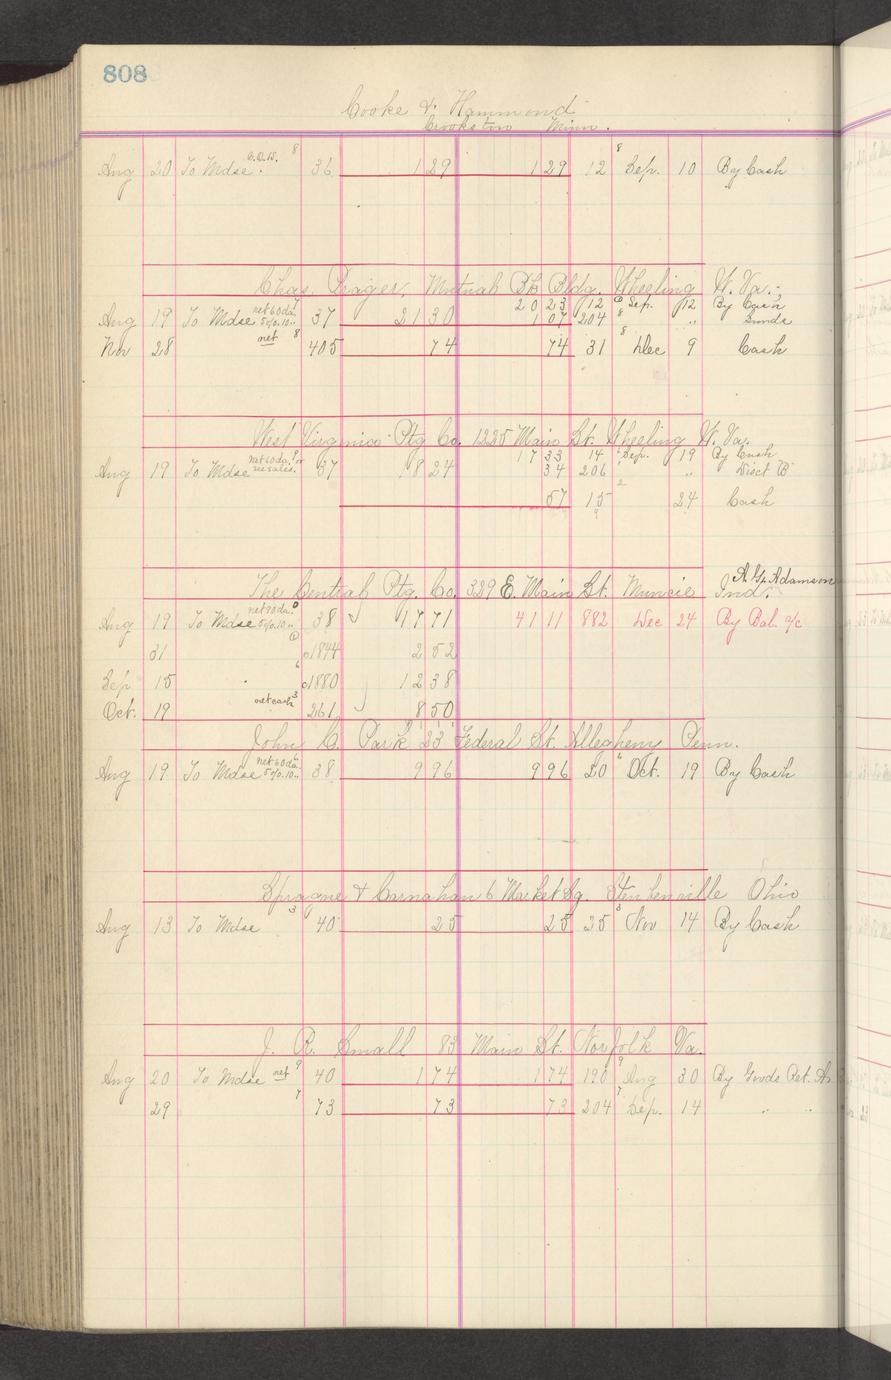 808
Cooke & Hammond
Crookston Minn.
Aug 20 To Mdse C.O.D. 8 36 1 29 1 29 12 8 Sep. 10 By Cash
Chas. Prager, Mutual Bk Bldg. Wheeling W. Va.
20 23 12 Sep. 12 By Cash
Aug 19 To Mdse net 60 da. 5% 10 " 37 21 30 1 07 204 8 " Sunds
Nov 28 net 8 405 74 74 31 8 Dec 9 Cash
West Virginia Ptg Co. 1225 Main St. Wheeling W. Va.
17 33 14 Sep. 19 By Cash
Aug 19 To Mdse net 60 da. or see sales. 37 18 24 34 206 " Disct B
57 15 2 24 Cash
The Central Ptg. Co. 329 E. Main St. Muncie Ind. A. G. Adamson
Aug 19 To Mdse net 90 da. 5% 10 " 38 17 71 41 11 882 Dec 24 By Bal. a/c
31 1844 2 52
Sep 15 6 1880 12 38
Oct. 19 net cash 3 261 8 50
John C. Park 23 Federal St. Allegheny Penn.
Aug 19 To Mdse net 60 da. 5% 10 " 38 9 96 9 96 20 6 Oct. 19 By Cash
Sprague & Carnahan 6 Market Sq. Steubenville Ohio
Aug 13 To Mdse 3 40 25 25 25 3 Nov 14 By Cash
J. R. Small 83 Main St. Norfolk Va.
Aug 20 To Mdse net 9 40 1 74 1 74 190 9 Aug 30 By Goods Ret.
29 7 73 73 73 204 7 Sep. 14 " "